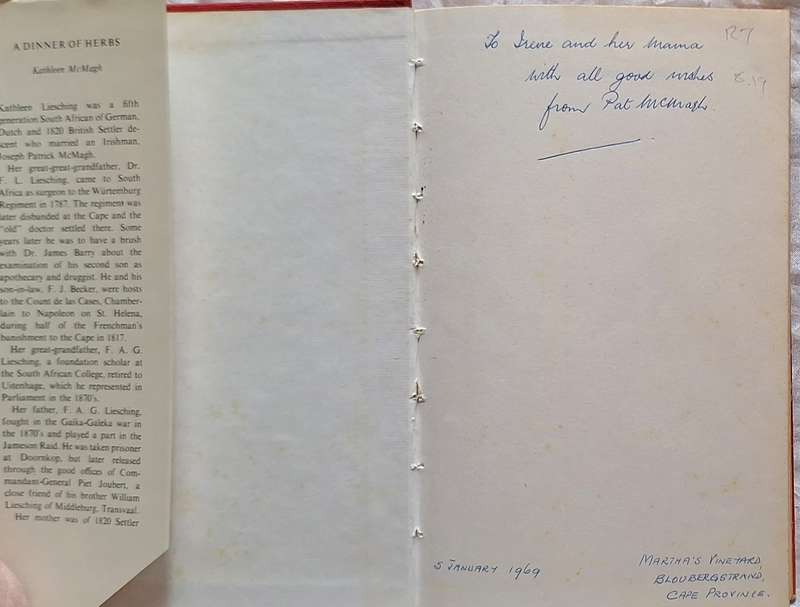 A DINNER OF HERBS
Kathleen McMagh
Kathleen Liesching was a fifth
generation South African of German,
Dutch and 1820 British Settler de-
scent who married an Irishman,
Joseph Patrick McMagh.
Her great-great-grandfather, Dr.
F. L. Liesching, came to South
Africa as surgeon to the Würtemburg
Regiment in 1787. The regiment was
later disbanded at the Cape and the
"old" doctor settled there. Some
years later he was to have a brush
with Dr. James Barry about the
examination of his second son as
apothecary and druggist. He and his
son-in-law, F. J. Becker, were hosts
to the Count de las Cases, Chamber-
lain to Napoleon on St. Helena,
during half of the Frenchman's
banishment to the Cape in 1817.
Her great-grandfather, F. A. G.
Liesching, a foundation scholar at
the South African College, retired to
Uitenhage, which he represented in
Parliament in the 1870's.
Her father, F. A. G. Liesching,
fought in the Gaika-Galeka war in
the 1870's and played a part in the
Jameson Raid. He was taken prisoner
at Doornkop, but later released
through the good offices of Com-
mandant-General Piet Joubert, a
close friend of his brother William
Liesching of Middleburg, Transvaal.
Her mother was of 1820 Settler
To Irene and her Mama
with all good wishes
from Pat McMagh.
R7
5 JANUARY 1969
MARTHA'S VINEYARD,
BLOUBERGSTRAND,
CAPE PROVINCE.